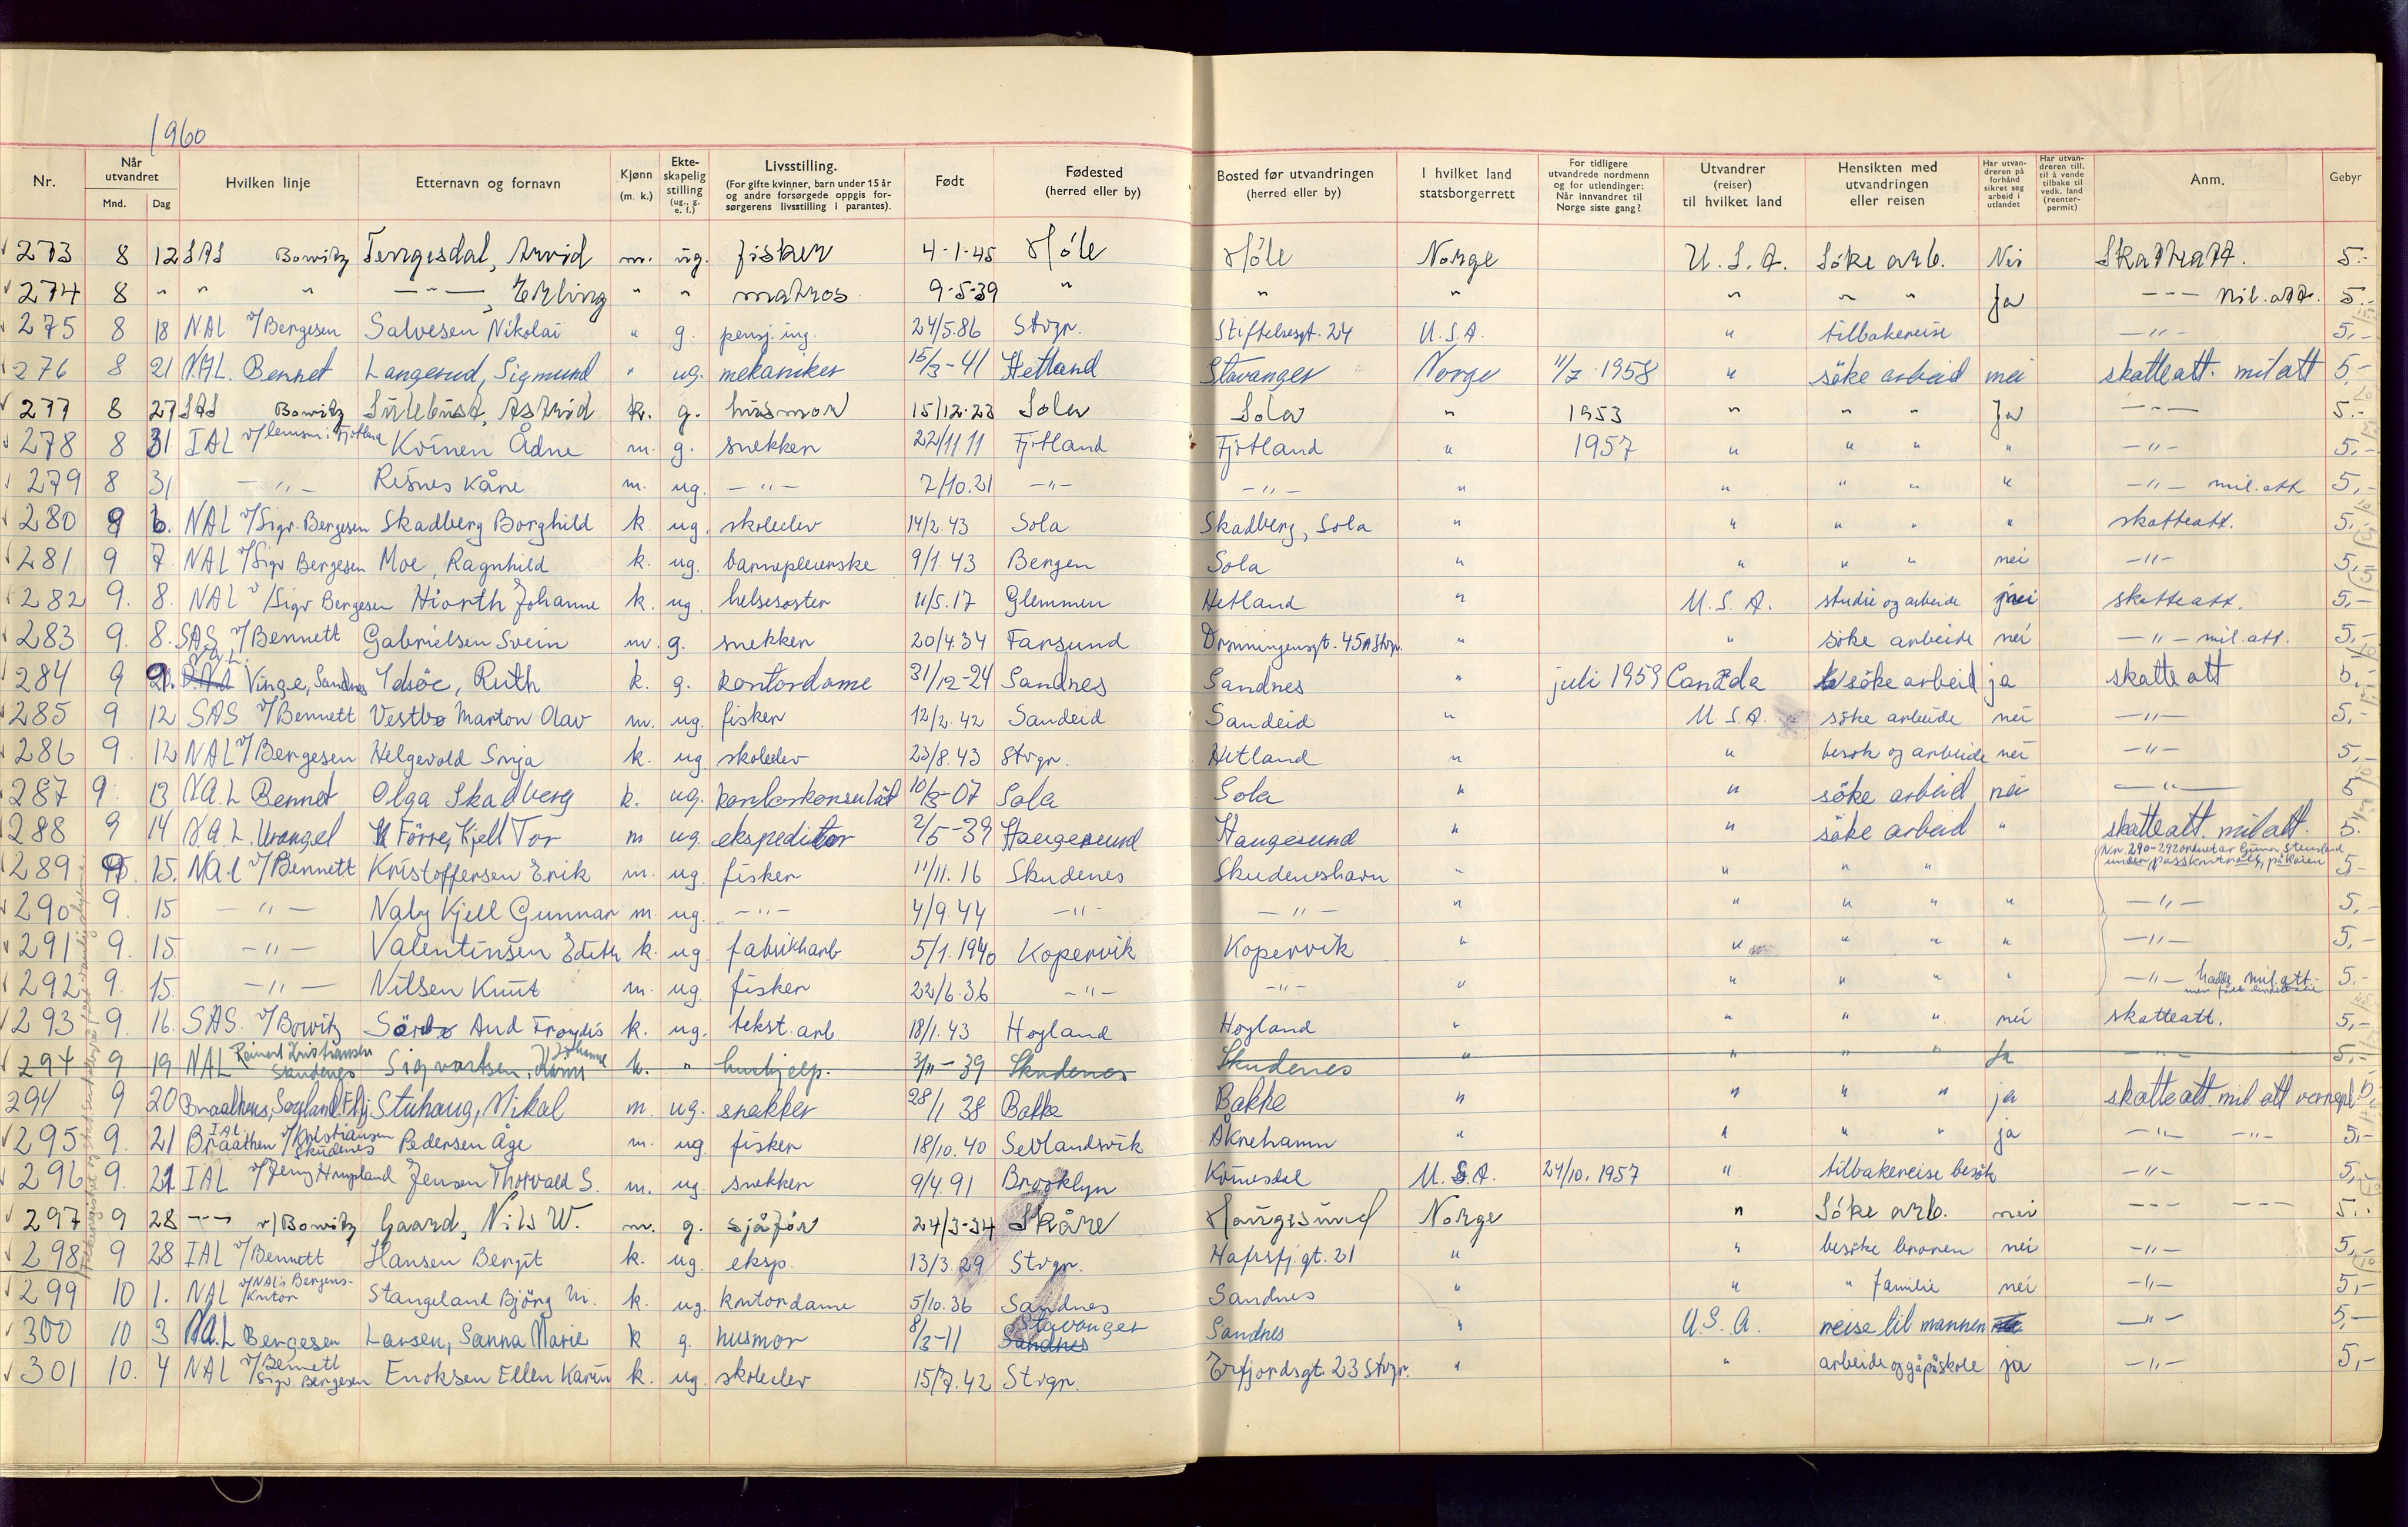 1960
Nr. Når utvandret Mnd. Dag Hvilken linje Etternavn og fornavn Kjønn (m. k.) Ekteskapelig stilling (ug., g. e. f.) Livsstilling. (For gifte kvinner, barn under 15 år og andre forsørgede oppgis forsørgerens livsstilling i parantes). Født Fødested (herred eller by) Bosted før utvandringen (herred eller by) I hvilket land statsborgerrett For tidligere utvandrede nordmenn og for utlendinger: Når innvandret til Norge siste gang? Utvandrer (reiser) til hvilket land Hensikten med utvandringen eller reisen Har utvandreren på forhånd sikret seg arbeid i utlandet Har utvandreren till. til å vende tilbake til vedk. land (reenterpermit) Anm. Gebyr
273 8 12 SAS Bowitz Tengesdal, Arvid m. ug. fisker 4-1-45 Høle Høle Norge U.S.A. Söke arb. Nei Skatteatt. 5.-
274 8 " " " —"—, Erling " " matros 9-5-39 " " " " " " Ja --- Mil.att. 5.-
275 8 18 NAL v/Bergesen Salvesen Nikolai " g. pensj. ing. 24/5.86 Stvgr. Stiftelsesgt. 24 U.S.A. " tilbakereise —"— 5,-
276 8 21 N.A.L. Bennet Langerud, Sigmund " ug. mekaniker 15/3-41 Hetland Stavanger Norge 11/7 1958 " söke arbeid nei skatteatt. mil att 5,-
277 8 27 SAS Bowitz Sülebust, Astrid k. g. husmor 15/12-23 Sola Sola " 1953 " " " Ja --- 5.-
278 8 31 IAL v/lensm. i Fjotland Kvinen Ådne m. g. snekker 22/11 11 Fjotland Fjotland " 1957 " " " " —"— 5,-
279 8 31 —"— Risnes Kåre m. ug. —"— 7/10.21 —"— —"— " " " " " —"— mil.att 5,-
280 9 6. NAL v/Sigv. Bergesen Skadberg Borghild k. ug. skoleelev 14/2.43 Sola Skadberg, Sola " " " " " skatteatt. 5,-
281 9 7. NAL v/Sigv Bergesen Moe, Ragnhild k. ug. barnepleierske 9/1.43 Bergen Sola " " " " nei —"— 5,-
282 9. 8. NAL v/Sigv Bergesen Hiorth Johanne k. ug. helsesøster 11/5.17 Glemmen Hetland " U.S.A. studie og arbeide nei skatteatt. 5,-
283 9. 8. SAS v/Bennett Gabrielsen Svein m. g. snekker 20/4.34 Farsund Dronningensgt. 45A Stvgr. " " söke arbeide nei —"— mil.att. 5,-
284 9 9. Vinge, Sandnes Idsöe, Ruth k. g. kontordame 31/12-24 Sandnes Sandnes " juli 1959 Canada söke arbeid ja skatte att 5,
285 9 12 SAS v/Bennett Vestbø Marton Olav m. ug. fisker 12/2.42 Sandeid Sandeid " U.S.A. söke arbeide nei —"— 5,-
286 9. 12 NAL v/Bergesen Helgevold Sonja k. ug skoleelev 23/8.43 Stvgr. Hetland " " besøk og arbeide nei —"— 5,-
287 9. 13 N.A.L Bennet Olga Skadberg k. ug. 10/3-07 Sola Sola " " söke arbeid nei —"— 5
288 9 14 N.A.L. Wrangel Förre, Kjell Tor m ug. ekspeditør 2/5-39 Haugesund Haugesund " " söke arbeid " skatteatt. mil att. 5.
289 9. 15. NAL v/Bennett Kristoffersen Erik m. ug. fisker 11/11.16 Skudenes Skudeneshavn " " " " Nr. 290-292 ordnet av Gunn. Steinsland under passkontroll, på kaien 5,-
290 9. 15 —"— Naley Kjell Gunnar m. ug. —"— 4/9.44 —"— —"— " " " " " —"— 5,-
291 9. 15. —"— Valentinsen Edith k. ug. fabrikkarb 5/1.1940 Kopervik Kopervik " " " " " —"— 5,-
292 9. 15. —"— Nilsen Knut m. ug fisker 22/6.36 —"— —"— " " " " " —"— hadde mil.att 5,-
293 9. 16. SAS. v/Bowitz Sörbø Aud Frøydis k. ug. tekst. arb 18/1.43 Høyland Høyland " " " " nei skatteatt. 5,-
294 9 19 NAL Reinert Kristiansen Skudenes Sigvartsen, Johanne k. " hushjelp. 3/11-39 Skudenes Skudenes " " " " Ja --- 5.-
294 9 20 Braathens, Sogland.Flkj Stuhaug, Mikal m. ug. snekker 28/1 38 Bakke Bakke " " " " ja skatteatt. mil att vernepl 5,
295 9. 21 IAL Braathen v/Kristiansen Skudenes Pedersen Åge m. ug fisker 18/10.40 Sevlandsvik Åkrehamn " " " " ja —"— —"— 5,-
296 9. 21 IAL v/Jenny Jensen Thorvald S. m. ug. snekker 9/4.91 Brooklyn Kvinesdal U.S.A. 24/10.1957 " tilbakereise besök —"— 5,-
297 9 28 --- v/Bowitz Gaard, Nils W. m. g. sjåför 24/3-34 Skåre Haugesund Norge " Söke arb. nei --- --- 5.-
298 9 28 IAL v/Bennett Hansen Bergit k. ug. eksp. 13/3.29 Stvgr. Hafrsfj.gt. 21 " " besöke broren nei —"— 5,-
299 10 1. NAL v/NAL's Bergens-kontor Stangeland Björg M. k. ug. kontordame 5/10.36 Sandnes Sandnes " " " familie nei —"— 5,-
300 10 3 N.A.L Bergesen Larsen, Sanna Marie k g. husmor 8/3-11 Stavanger Sandnes Sandnes " U.S.A. reise til mannen —"— 5,-
301 10. 4 NAL v/Bennett Sigv Bergesen Enoksen Ellen Karin k. ug. skoleelev 15/7.42 Stvgr. Erfjordsgt. 23 Stvgr. " " arbeide og gå på skole ja —"— 5,-